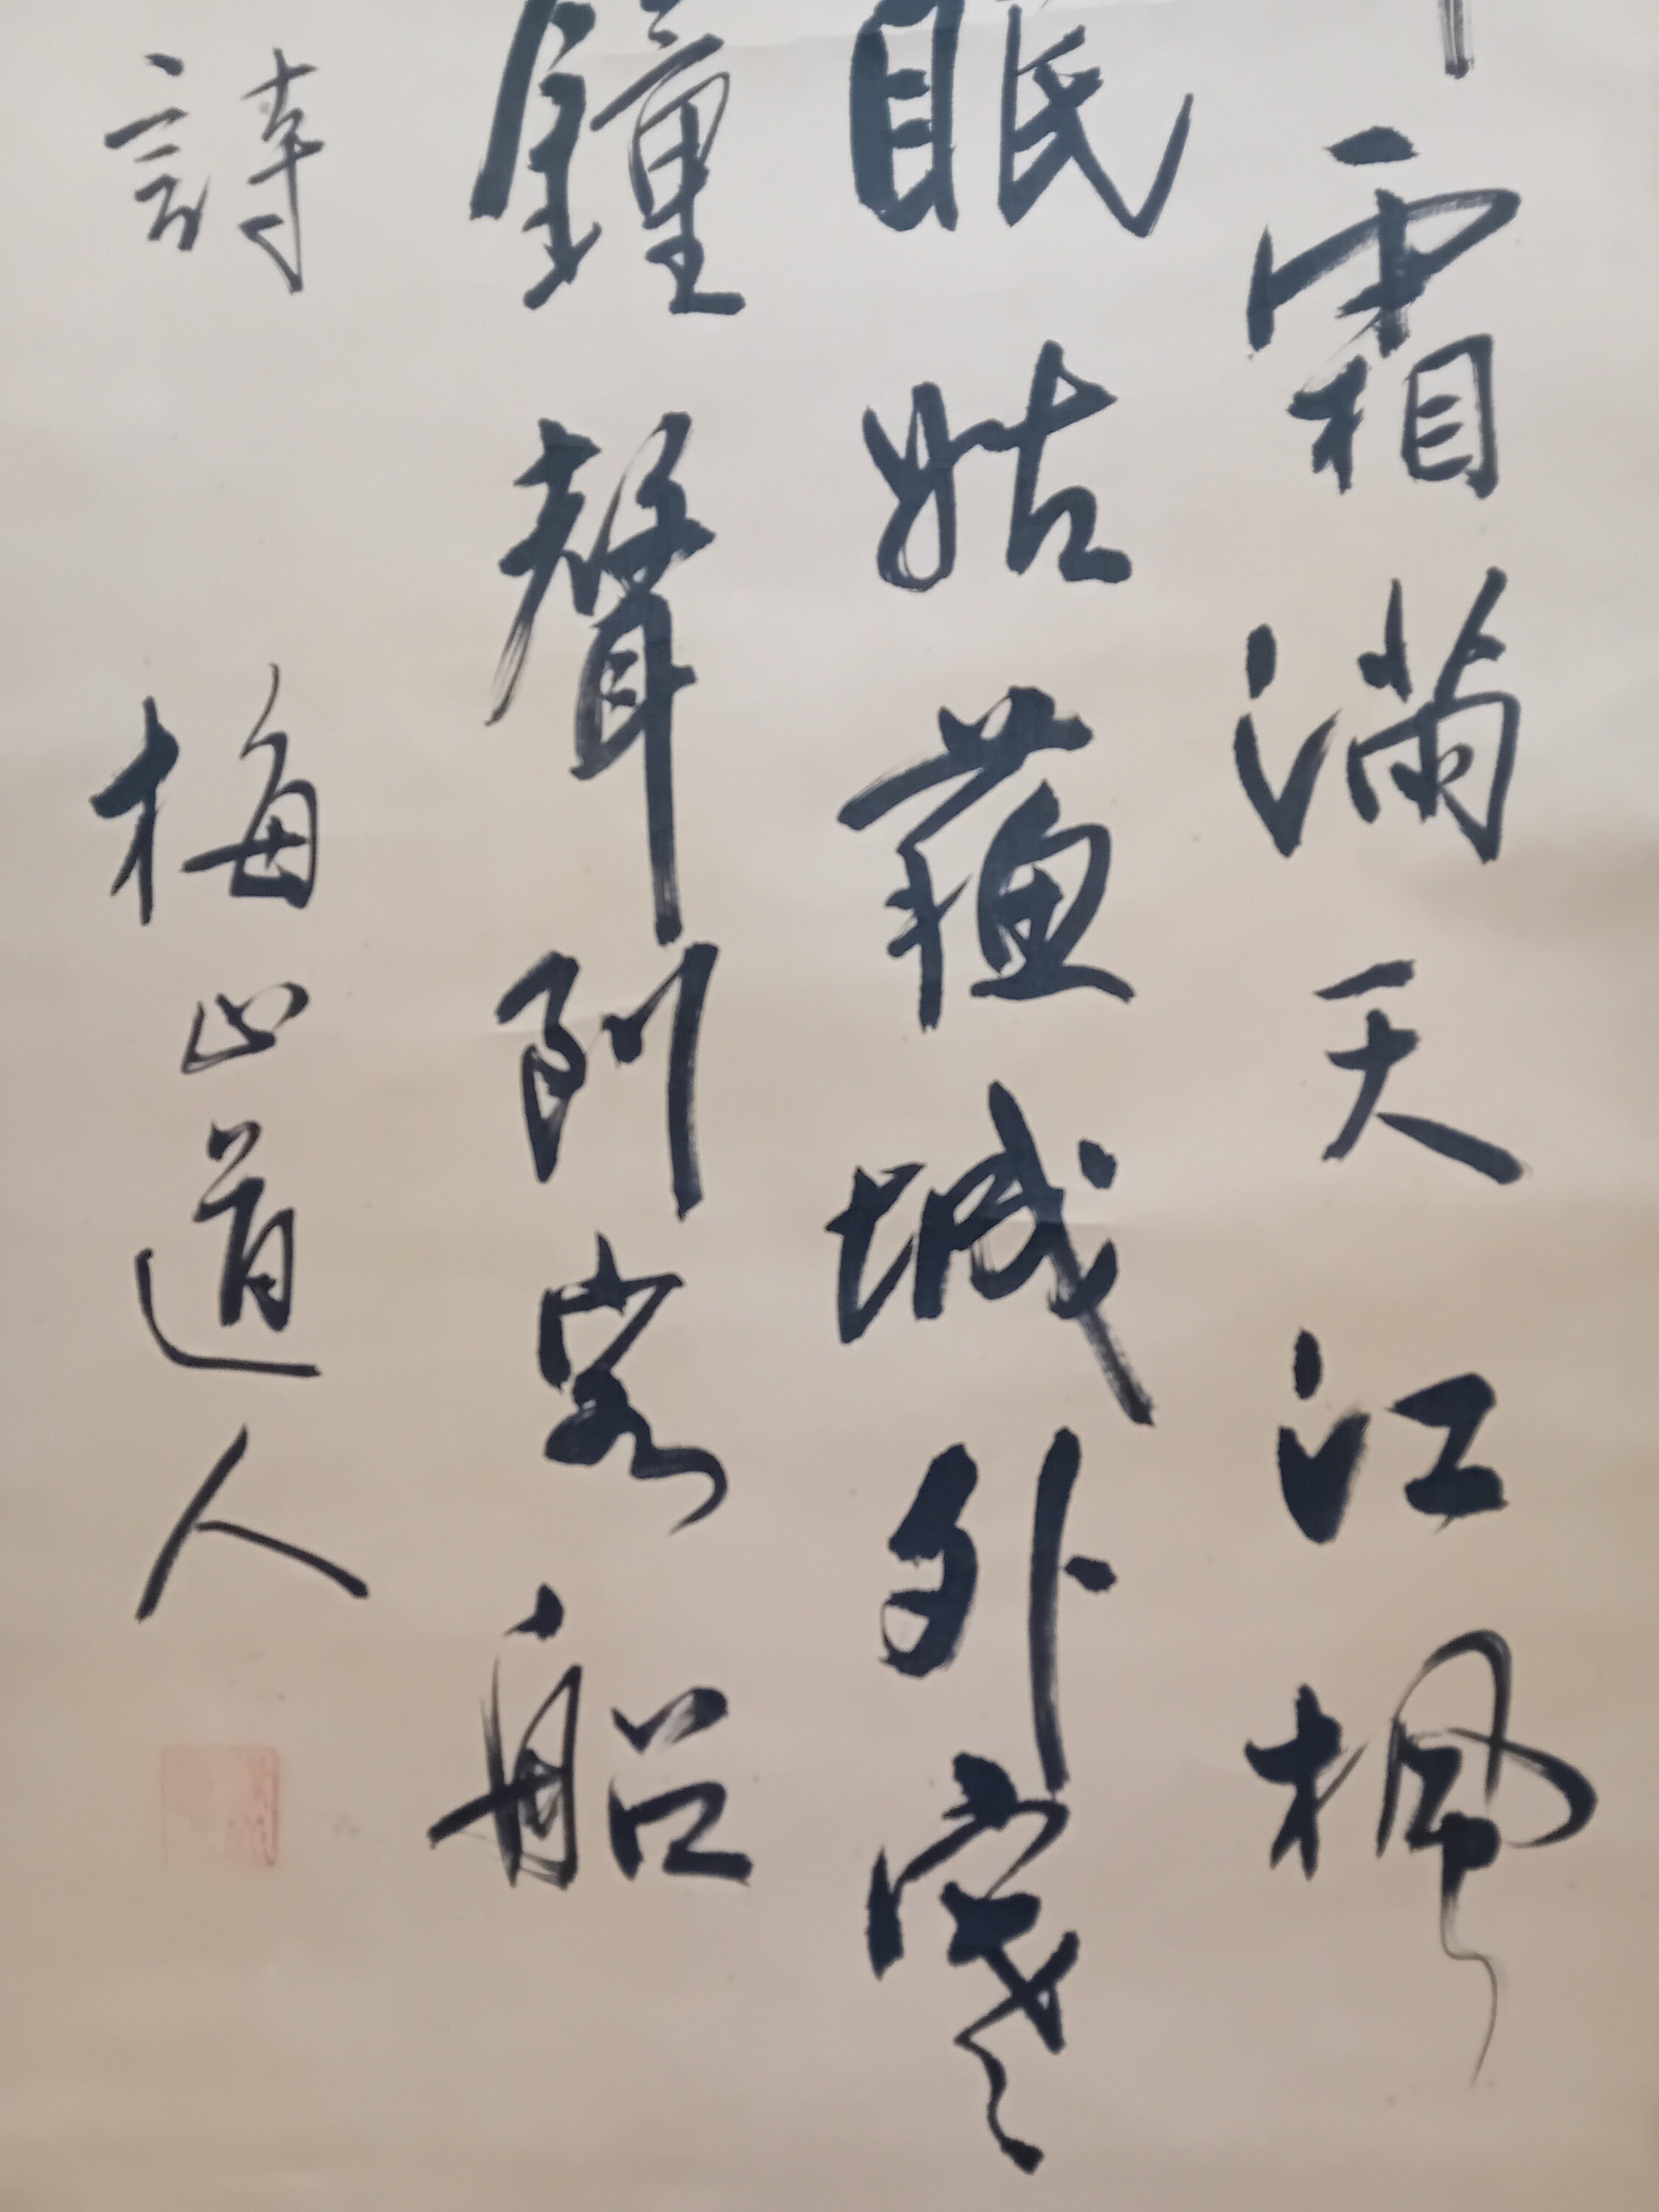 霜滿天江楓
眠姑蘓城外寒
鐘聲到客船
詩 梅山道人